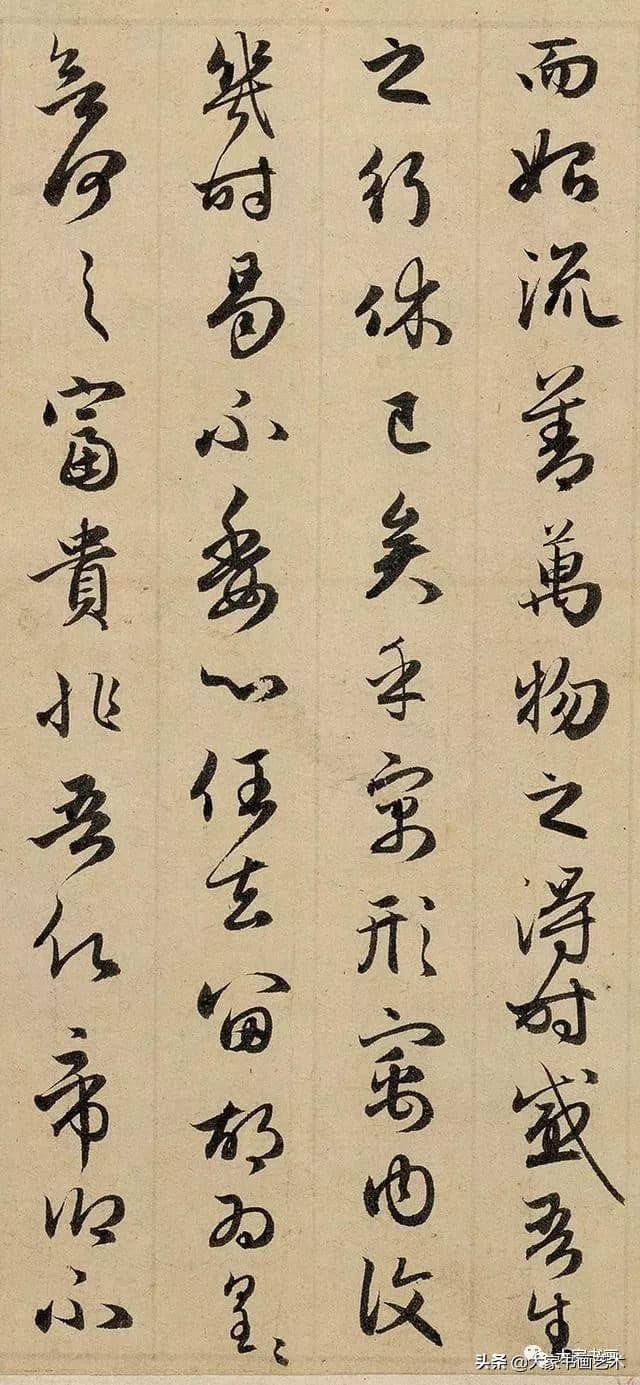 而始流善萬物之得時感吾生
之行休已矣乎寓形寓内復
幾時曷不委心任去留胡為皇〻
何之富貴非吾願帝鄉不
大家书画
头条 @大家书画艺术